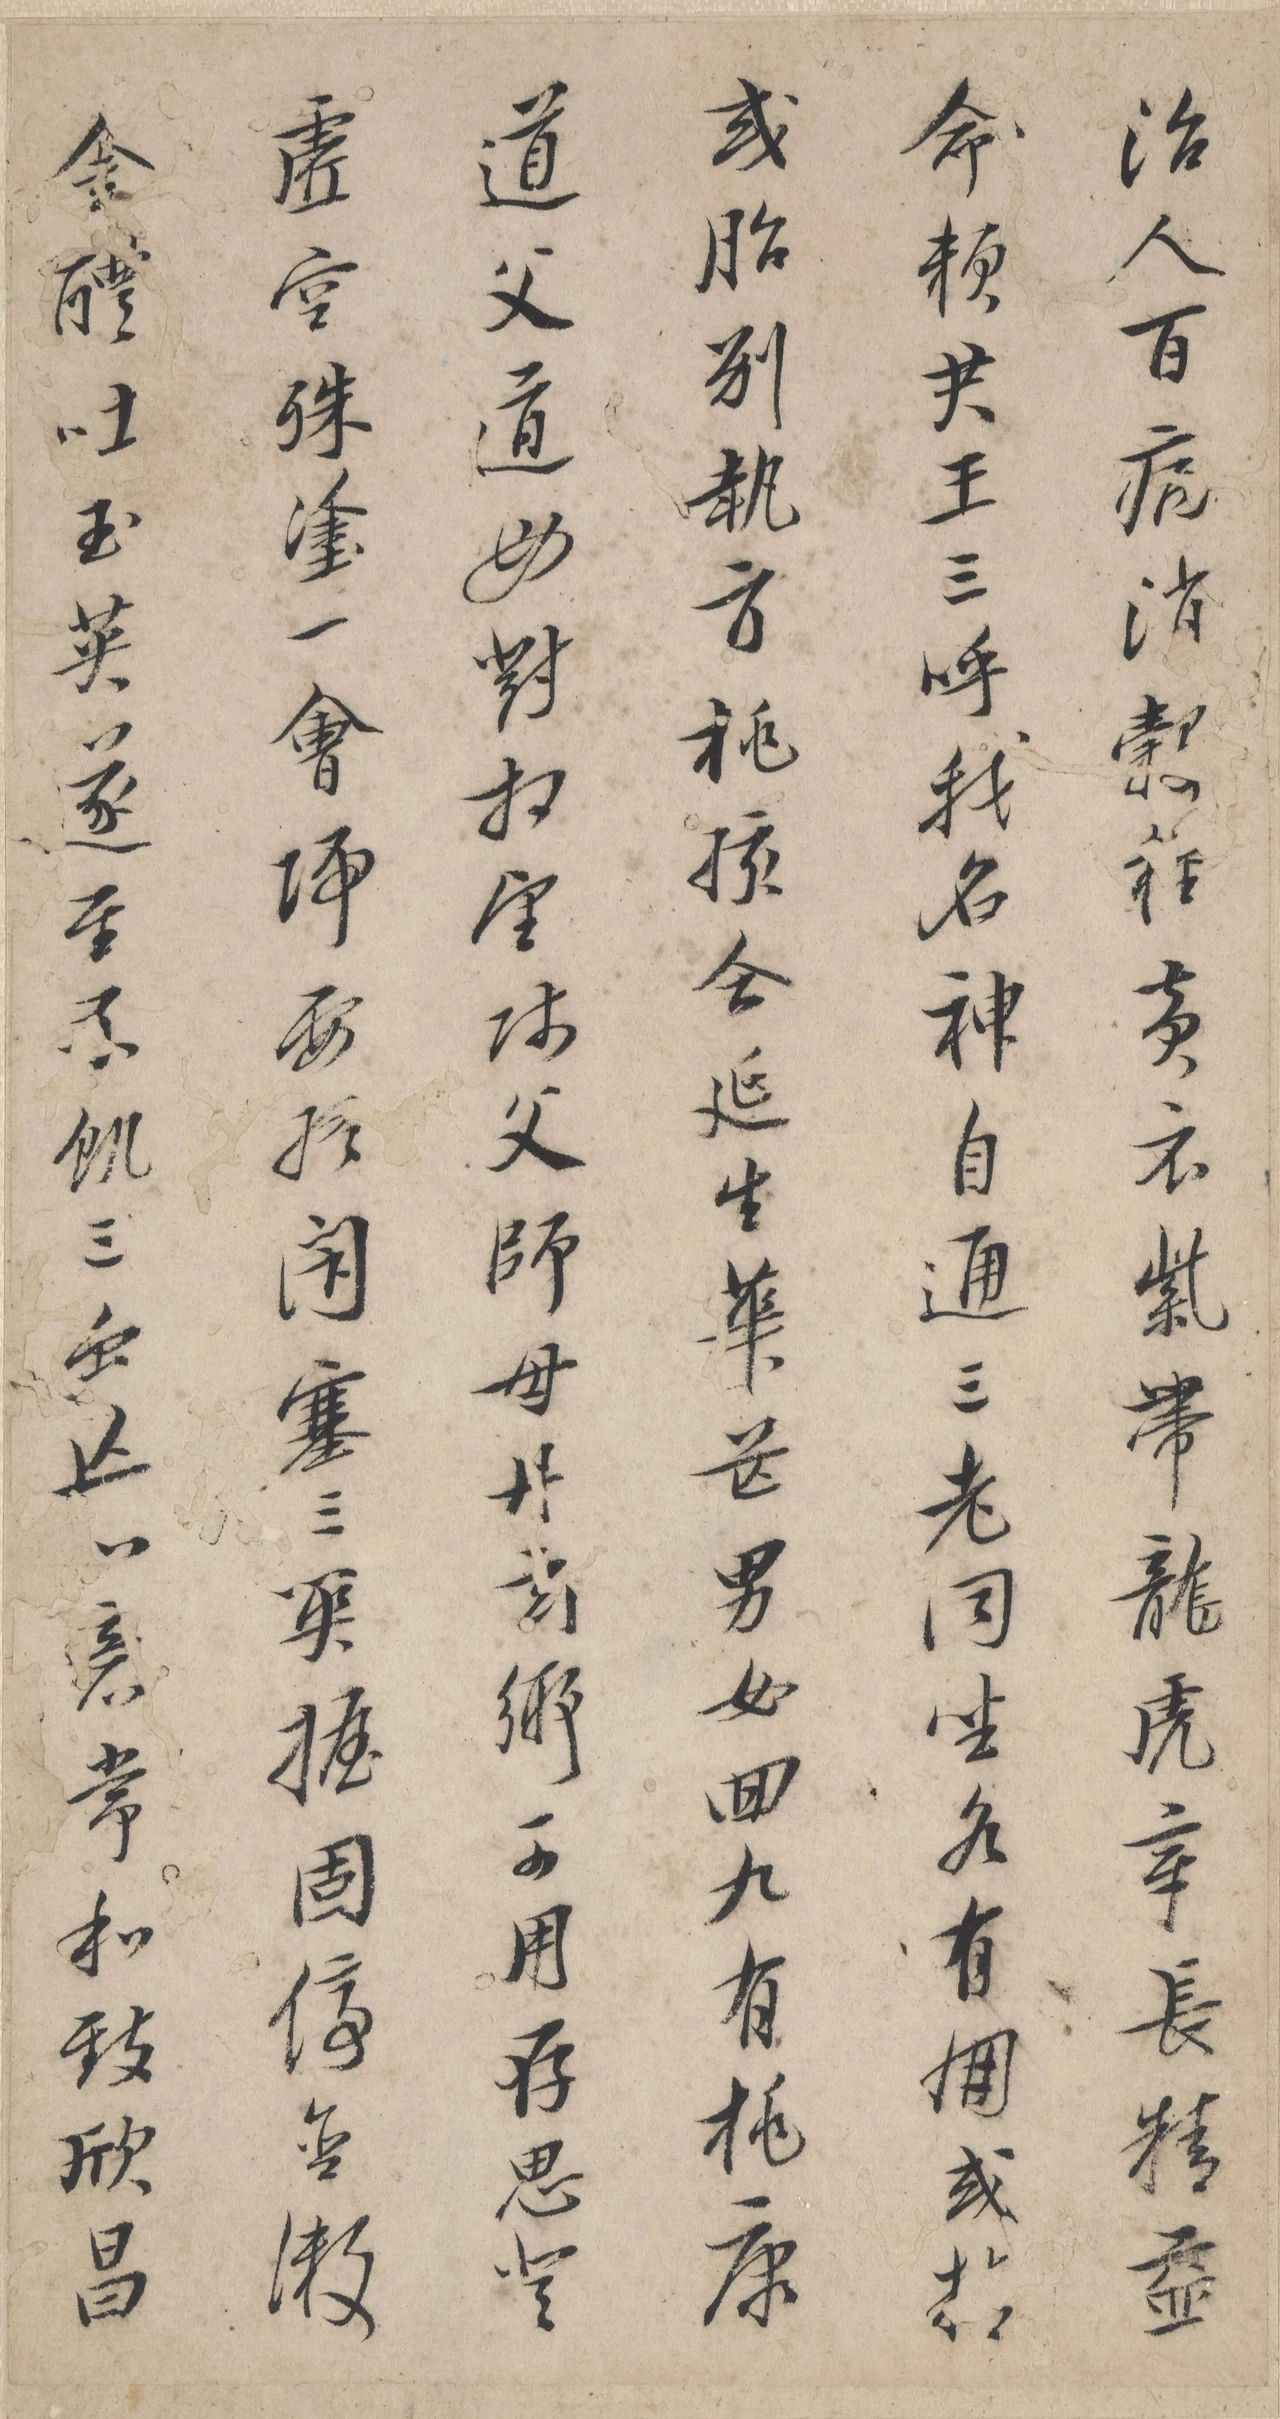 治人百病消穀粮黃衣紫帶龍虎章長精益
命賴共王三呼我名神自通三老同坐各有朋或
或胎別執方桃孩合延生華芒男女回九有桃康
道父道母對相望師父師母丹玄鄉可用存思登
虛空殊塗一會歸要終閉塞三關握固停含漱
金醴吐玉英遂至不飢三蟲亡心意常和致欣昌